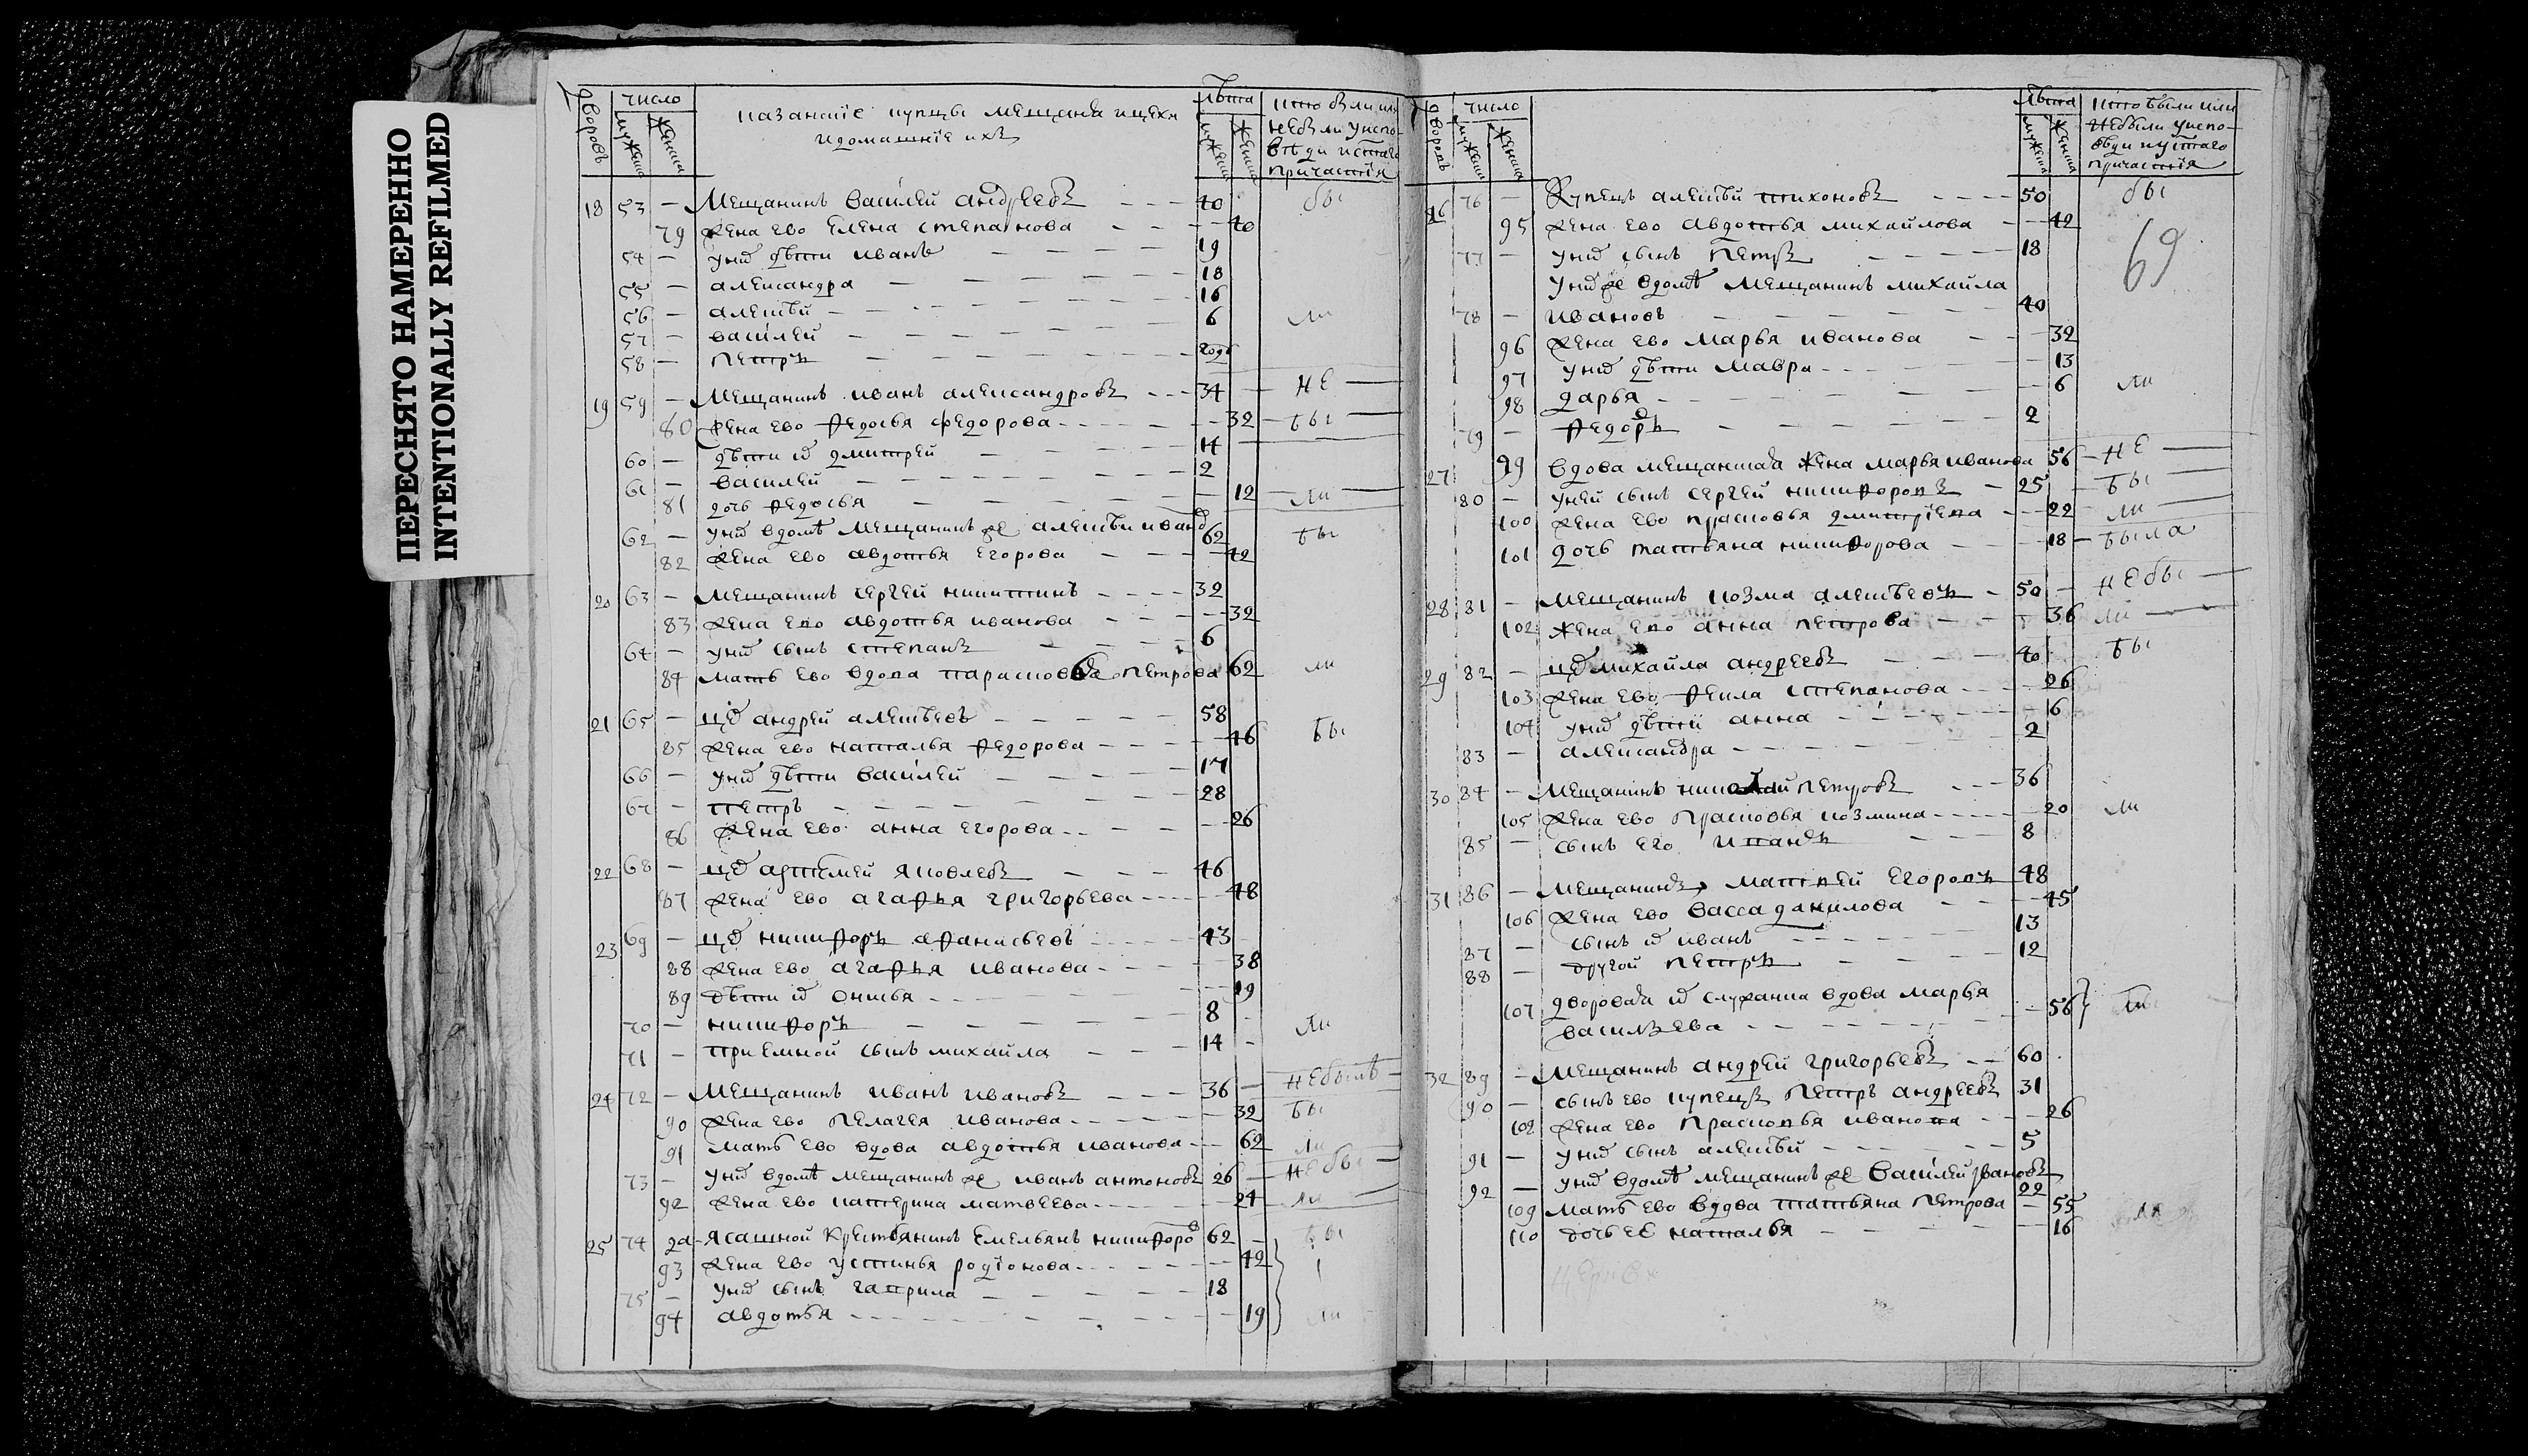 ПЕРЕСНЯТО НАМЕРЕННО
INTENTIONALLY REFILMED
дворовъ число мужеска женска
название купцы мещаня и цехи
и домашние ихъ
лѣта мужеска женска
кто были или
небыли у испо-
вѣди и стаго
причастїя
18 53 — Мещанинъ василей андреевъ 40 бы
79 жена ево елена степанова 40
54 — у нихъ дѣти иванъ 19
55 — александра 18
56 — алексѣй 16
57 — василей 6 ли
58 — петръ году
19 59 — Мещанинъ иванъ александровъ 34 не
80 жена ево федосья федорова 32 бы
60 — дѣти их дмитрей 14
61 — василей 2
81 дочь федосья 12 ли
62 — у них вдомѣ мещанинъ же алексѣй иванов 62 бы
82 жена ево авдотья егорова 42
20 63 — Мещанинъ сергей никитинъ 32
83 жена ево авдотья иванова 32
64 — у них сынъ степанъ 6
84 мать ево вдова парасковья петрова 62 ли
21 65 — цех андрей алексѣевъ 58
85 жена ево наталья федорова 46 бы
66 — у них дѣти василей 17
67 — петръ 28
86 жена ево анна егорова 26
22 68 — цех артемей яковлевъ 46
87 жена ево агафья григорьева 48
23 69 — цех никифоръ афанасьевъ 43
88 жена ево агафья иванова 38
89 дѣти их 19
70 — никифоръ 8
71 — приемной сынъ михайла 14 ли
24 72 — Мещанинъ иванъ ивановъ 36 небылъ
90 жена ево пелагея иванова 32 бы
91 мать ево вдова авдотья иванова 62 ли
73 — у них вдомѣ мещанинъ же иванъ антоновъ 26 небы
92 жена ево катерина матвеева 24 ли
25 74 Ясашной крестьянинъ емельянъ никифоров 62 бы
93 жена ево устинья родїонова 42
75 — у них сынъ гаврила 18
94 авдотья 19 ли
дворовъ число мужеска женска
лѣта мужеска женска
кто были или
небыли у испо-
вѣди и стаго
причастїя
26 76 — Купецъ алексѣй тихоновъ 50 бы
95 жена ево авдотья михайлова 42
69
77 — у них сынъ петръ 18
у них же вдомѣ мещанинъ михайла
78 — ивановъ 40
96 жена ево марья иванова 32
97 у них дѣти мавра 13
98 дарья 6 ли
79 — федоръ 2
27 99 вдова мещанская жена марья иванова 56 не
80 — у ней сынъ сергей никифоровъ 25 бы
100 жена ево прасковья дмитрїева 22 ли
101 дочь татьяна никифорова 18 была
28 81 — Мещанинъ козма алексѣевъ 50 небы
102 жена ево анна петрова 36 ли
29 82 — цех михайла андреевъ 40 бы
103 жена ево фекла степанова 26
104 у них дѣтїй анна 6
83 — александра 2
30 84 — Мещанинъ николай петровъ 36
105 жена ево прасковья козмина 20 ли
85 — сынъ его 8
31 86 — Мещанинъ матвей егоровъ 48
106 жена ево васса данилова 45
87 — сынъ их иванъ 13
88 — другой петръ 12
107 дворовая их служанка вдова марья
васильева 56
32 89 — Мещанинъ андрей григорьевъ 60
90 — сынъ ево купецъ петръ андреевъ 31
108 жена ево прасковья иванова 26
91 — у них сынъ алексѣй 5
92 — у них вдомѣ мещанинъ же василей ивановъ 22
109 мать ево вдова татьяна петрова 55 ли
110 дочь ее наталья 16